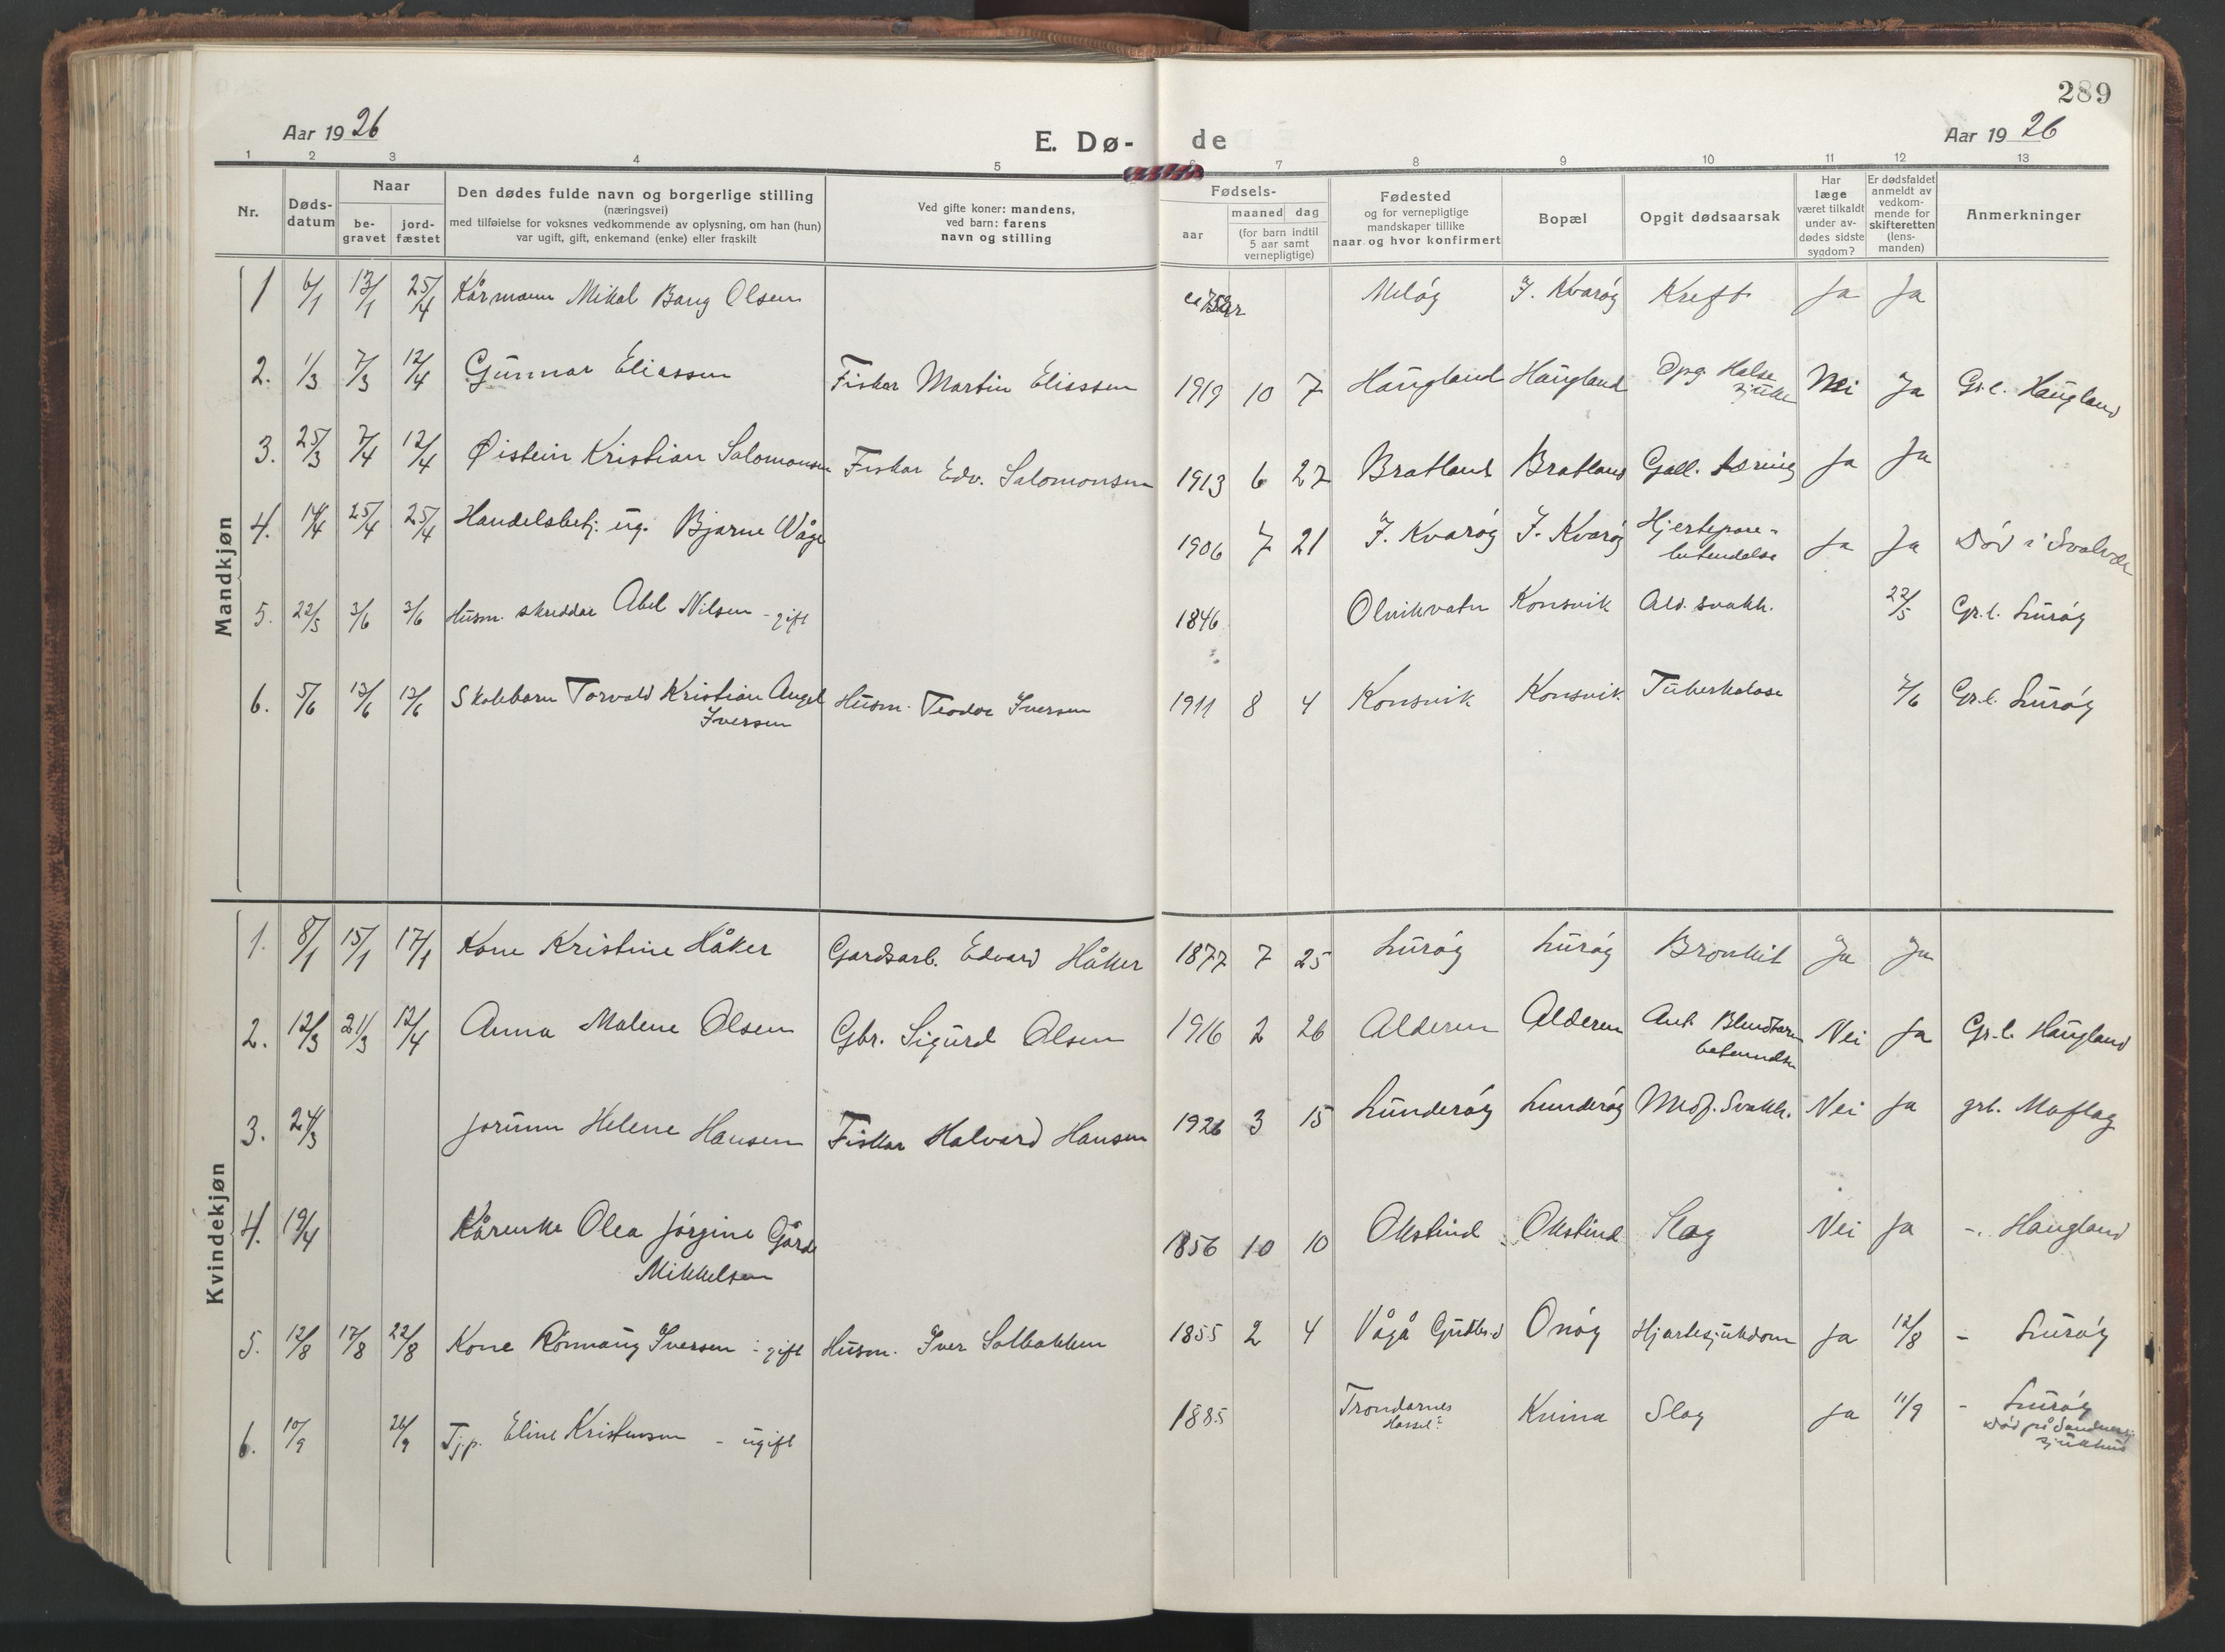 289
Aar 1926
E. Dø- de
Aar 1926
1 2 3 4 5 6 7 8 9 10 11 12 13
Nr.
Døds-
datum
Naar
be-
gravet
jord-
fæstet
Den dødes fulde navn og borgerlige stilling
(næringsvei)
med tilføielse for voksnes vedkommende av oplysning, om han (hun)
var ugift, gift, enkemand (enke) eller fraskilt
Ved gifte koner: mandens,
ved barn: farens
navn og stilling
Fødsels-
aar
maaned dag
(for barn indtil
5 aar samt
vernepligtige)
Fødested
og for vernepligtige
mandskaper tillike
naar og hvor konfirmert
Bopæl
Opgit dødsaarsak
Har
læge
været tilkaldt
under av-
dødes sidste
sygdom?
Er dødsfaldet
anmeldt av
vedkom-
mende for
skifteretten
(lens-
manden)
Anmerkninger
Mandkjøn
1 6/1 13/1 25/4 Kårmann Mikal Bang Olsen Meløy I. Kvarøy Kreft Ja Ja
2. 1/3 7/3 12/4 Gunnar Eliassen Fisker Martin Eliassen 1919 10 7 Haugland Haugland Opg. Halse
sjuke Nei Ja Gr.l. Haugland
3. 25/3 7/4 12/4 Øistein Kristian Salomonsen Fisker Edv. Salomonsen 1913 6 27 Bratland Bratland Gall. Ja Ja
4. 14/4 25/4 25/4 Handelsbetj. ug. Bjarne Våge 1906 7 21 I. Kvarøy I. Kvarøy
Ja Ja Død i Svolvær
5. 22/5 3/6 3/6 Husm. skreddar Abel Nilsen - gift 1846 Olvikvatn Konsvik Ald. svakh. 22/5 Gr.l. Lurøy
6. 5/6 13/6 13/6 Skolebarn Torvald Kristian Angel
Iversen Husm. Teodor Iversen 1911 8 4 Konsvik Konsvik Tuberkulose 7/6 Gr.l. Lurøy
Kvindekjøn
1. 8/1 15/1 17/1 Kone Kristine Håker Gardsarb. Edvard Håker 1877 7 25 Lurøy Lurøy Bronkit Ja Ja
2. 12/3 21/3 12/4 Anna Malene Olsen Gbr. Sigurd Olsen 1916 2 26 Alderen Alderen Ant. Blindtarm
betendelse Nei Ja Gr.l. Haugland
3. 24/3 Jorunn Helene Hansen Fisker Halvard Hansen 1926 3 15 Lunderøy Lunderøy Medf. Svakh. Nei Ja grl. Moflag
4. 19/4 Kårenke Olea Jørgine Gårde
Mikkelsen 1856 10 10 Okstind Okstind Slag Nei Ja -. Haugland
5. 12/8 17/8 22/8 Kone Rønnaug Iversen - gift Husm. Iver Solbakken 1855 2 4 Vågå Gudbr.d Onøy Hjartesjukdom Ja 12/8 - Lurøy
6. 10/9 26/9 Tjp. Eline Kristensen - ugift 1885 Trondarnes
Hassel? Kvina Slag Ja 11/9 - Lurøy
Død på
sjukhus